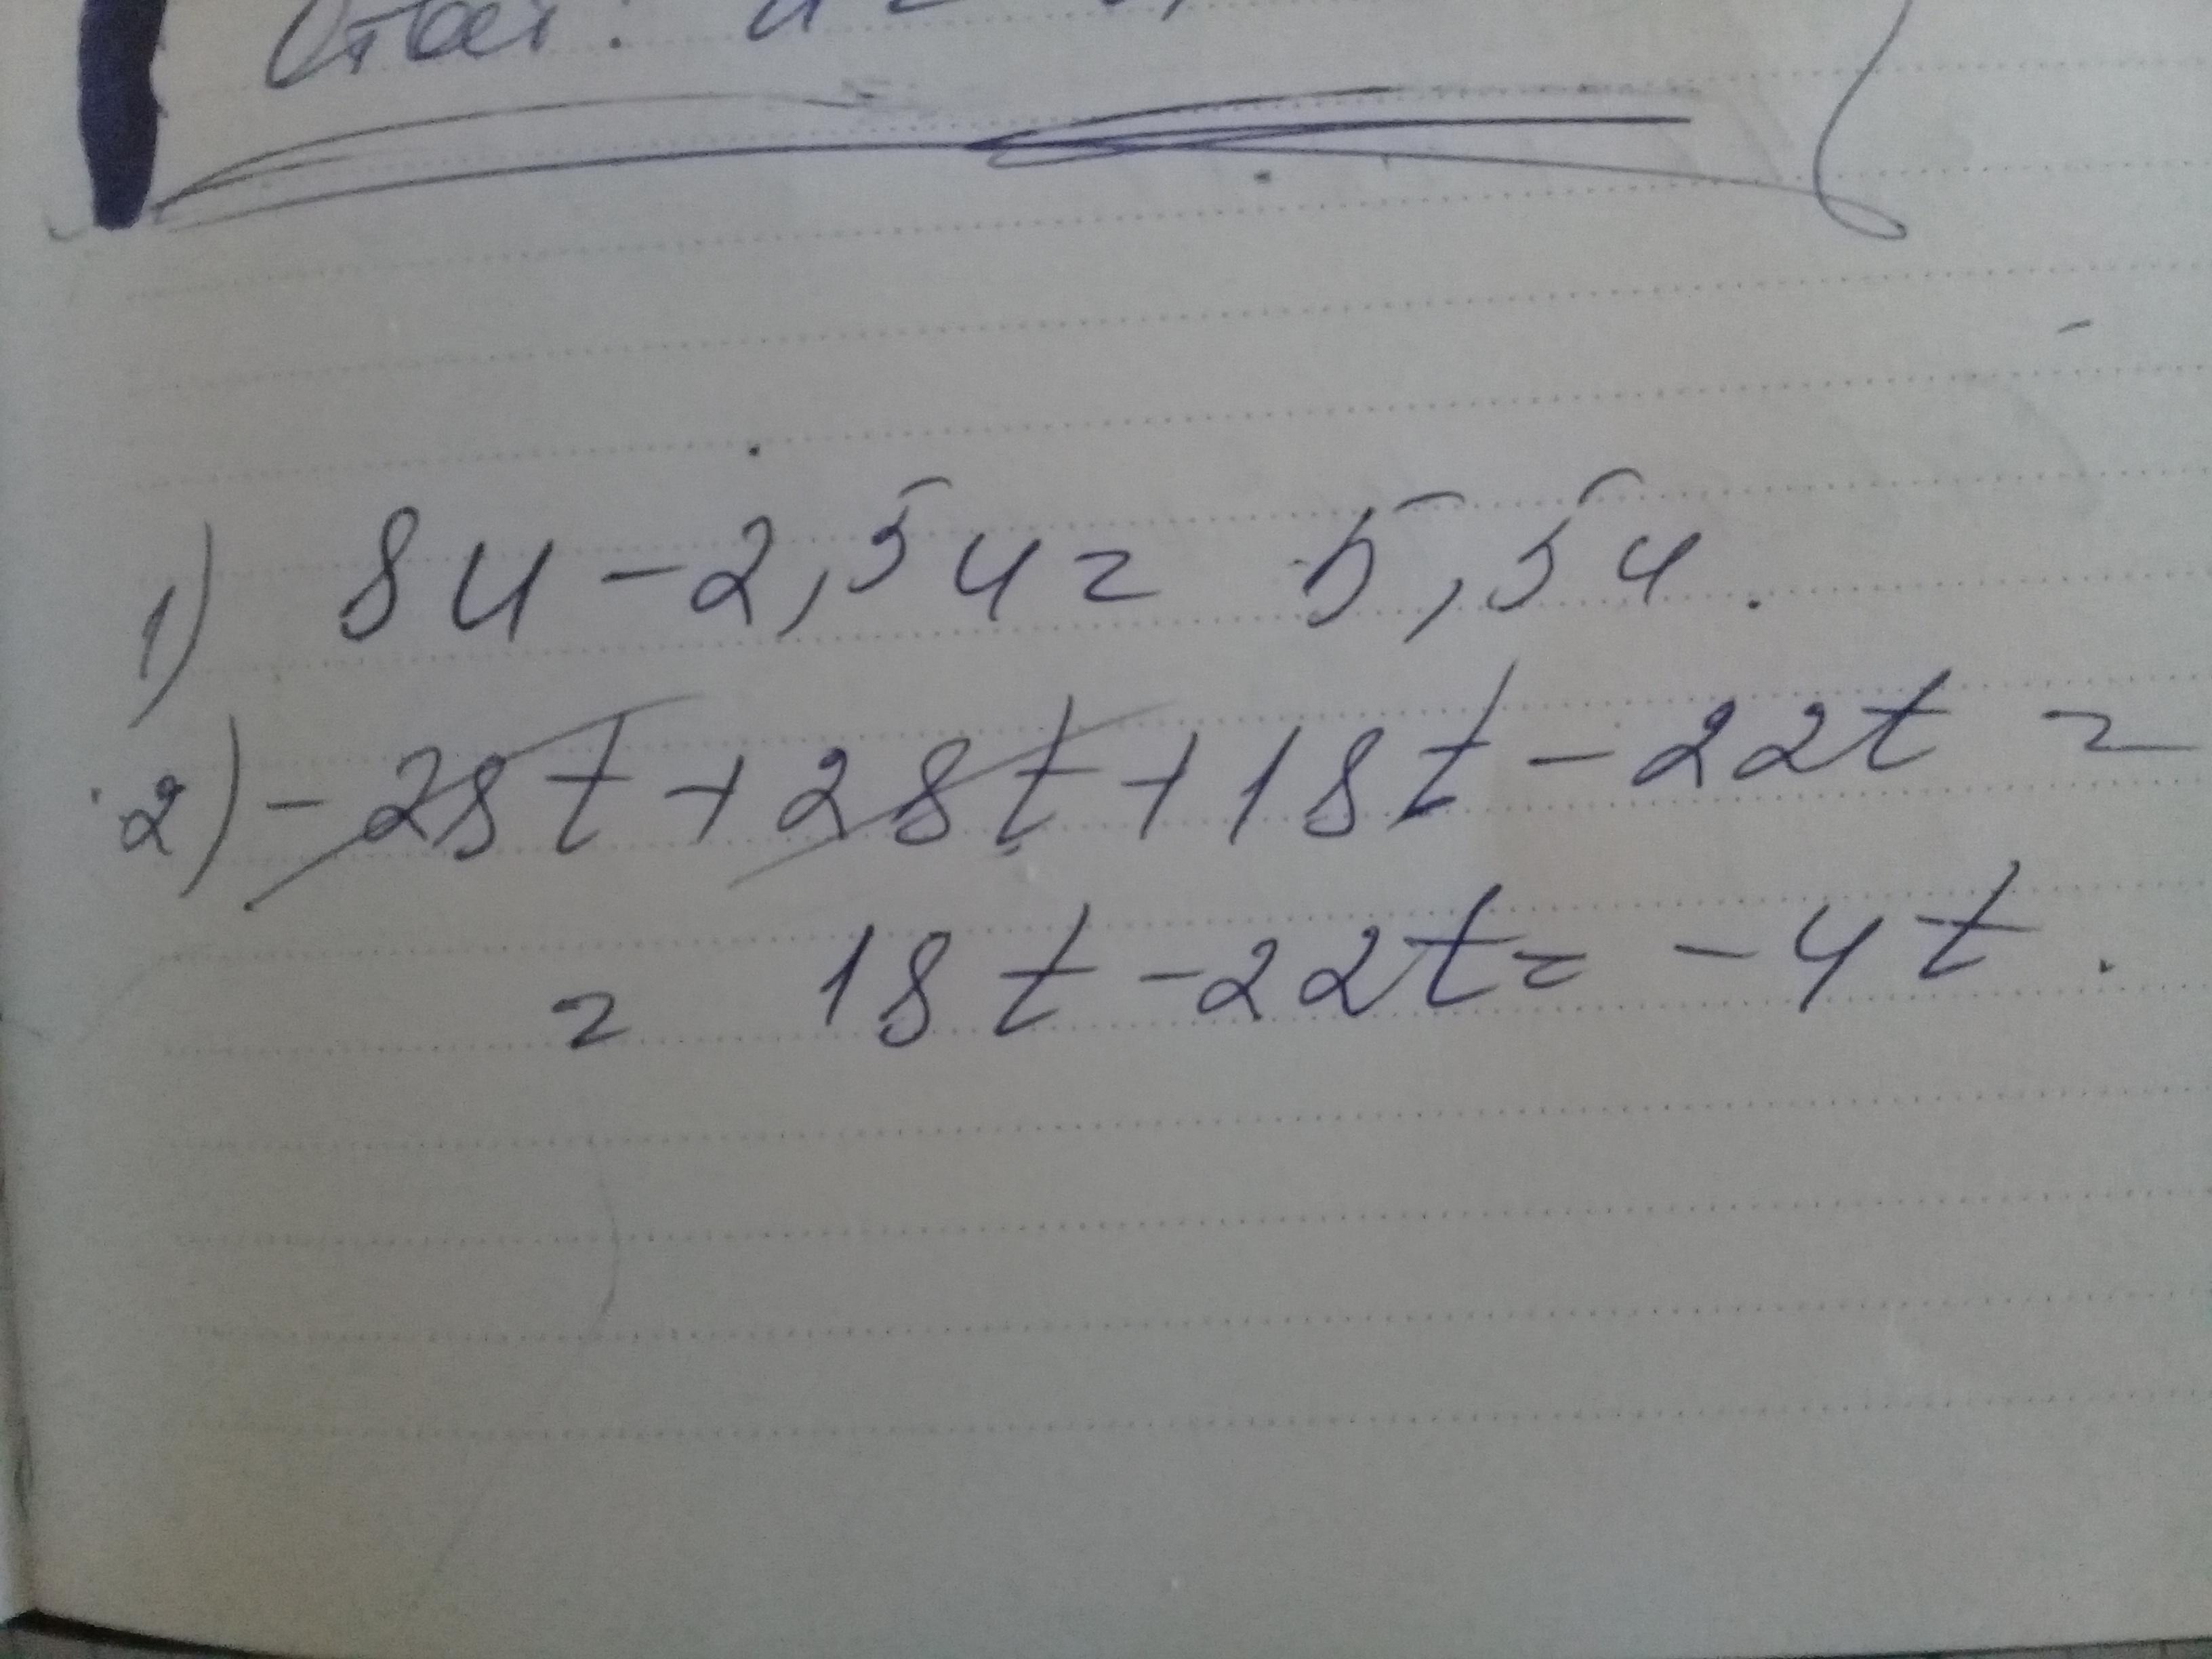 Ответ:
1) 8u - 2,5u = 5,5u.
2) - 28t + 28t + 18t - 22t =
= 18t - 22t = - 4t.